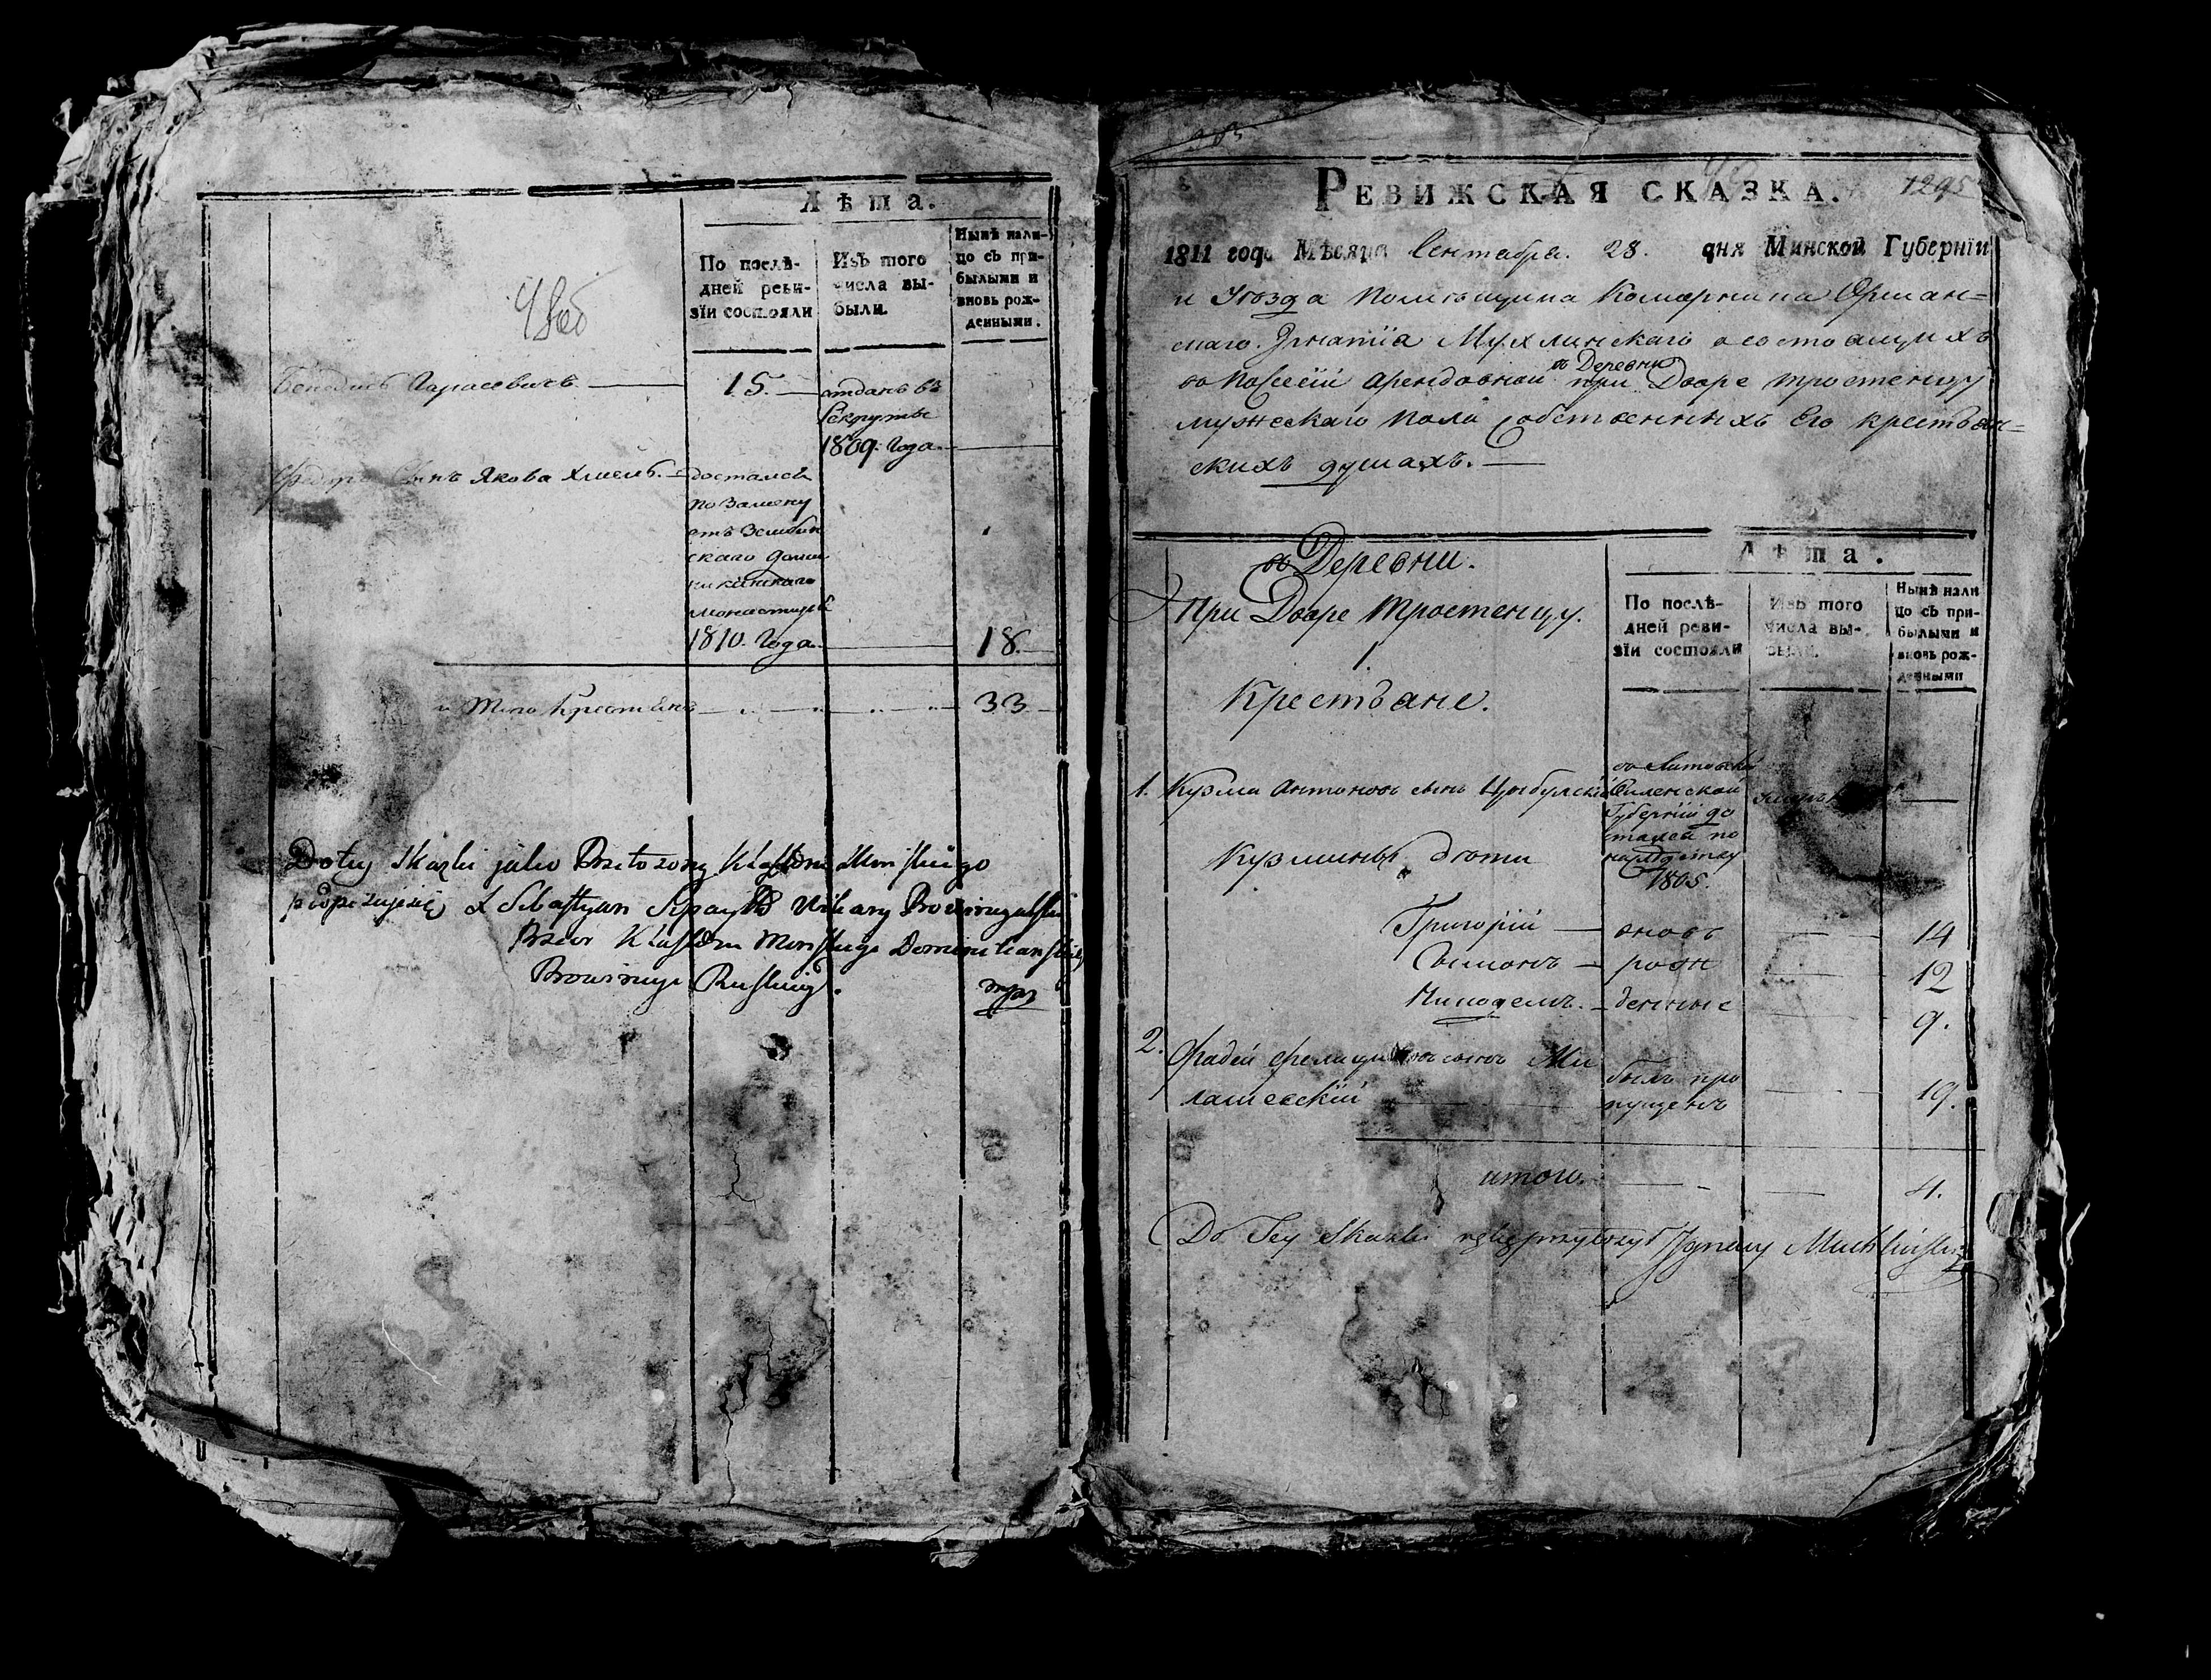 Лѣта.
По послѣ-
дней реви-
зїи состояли
Изъ того
числа вы-
были.
Нынѣ нали-
цо съ при-
былыми и
вновь рож-
денными.
Тарасевичъ 15. отданъ въ
рекруты
1809. Года.
сынъ Якова Хмель. достался
по Замену
отъ Зембин
скаго Доми
никанскаго
монастыря
1810. Года. 18.
итого Крестьянъ 33
Do tey Skazki jako Przełożony Klasztoru Minskiego
podpisuję się X Sebastyan Wikary Prowincyalski
Przeor Klasztoru Minskiego Dominikanskiey
Prowincyi Ruskiey.
mpr
Ревижская сказка. 1295
1811 года Мѣсяца Сентабра. 28. дня Минской Губернїи
и Уѣзда Помѣщика Коморника Оршан=
скаго. Игнатїа Мухлинскаго о состоящихъ
во Посесїи Арендовной въ Деревни при Дворе Тростенцу
мужескаго пола собственныхъ Его крестьян=
скихъ душахъ.
въ Деревни.
При Дворе Тростенцу.
1.
Крестьане.
Лѣта.
По послѣ-
дней реви-
зїи состояли
Изъ того
числа вы-
были.
Нынѣ нали
цо съ при-
былыми и
вновь рож-
денными
1. Кузма Антоновъ сынъ Цыбулскій
въ Литовской
Виленской
Губернїи до
стался по
наслѣдству
1805.
Кузмины дѣти
Григорій вновь 14
Сымонъ рож 12
Никодемъ. денные 9.
2. Фадей сынъ Ми
лашевскїй
былъ про
пущенъ 19.
итого. 4.
Do Tey Skazki Ignacy Muchlinski